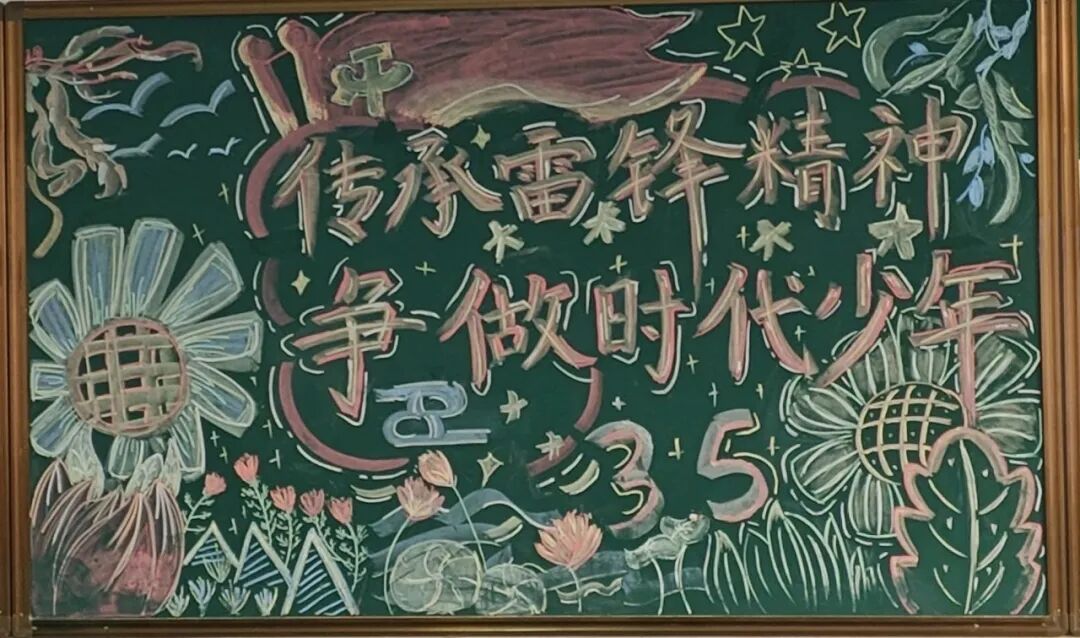 传承雷锋精神
争做时代少年
3 5